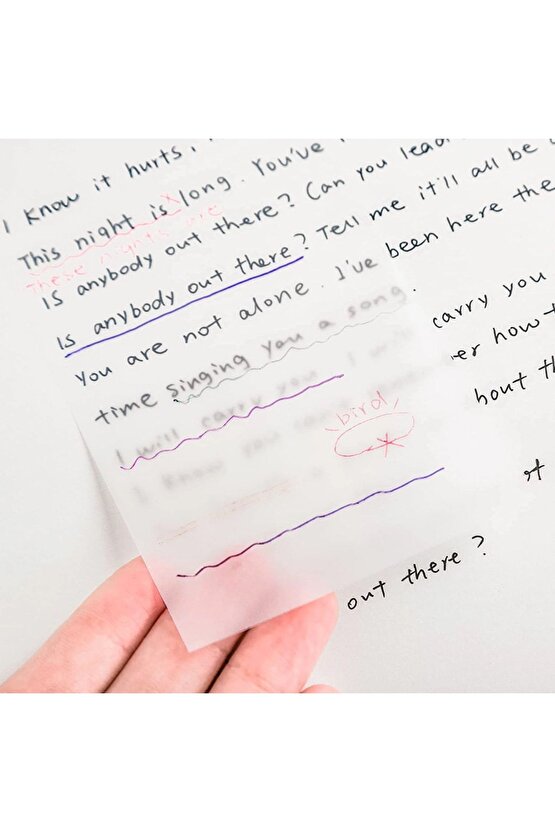 I know it hurts,
This night is long. You've
These nights are
Is anybody out there? Can you lead
Is anybody out there? Tell me it'll all be
You are not alone. I've been here the
time singing you a song.
I will carry you. I will carry you
I know you er how t
bird
bout th
out there?